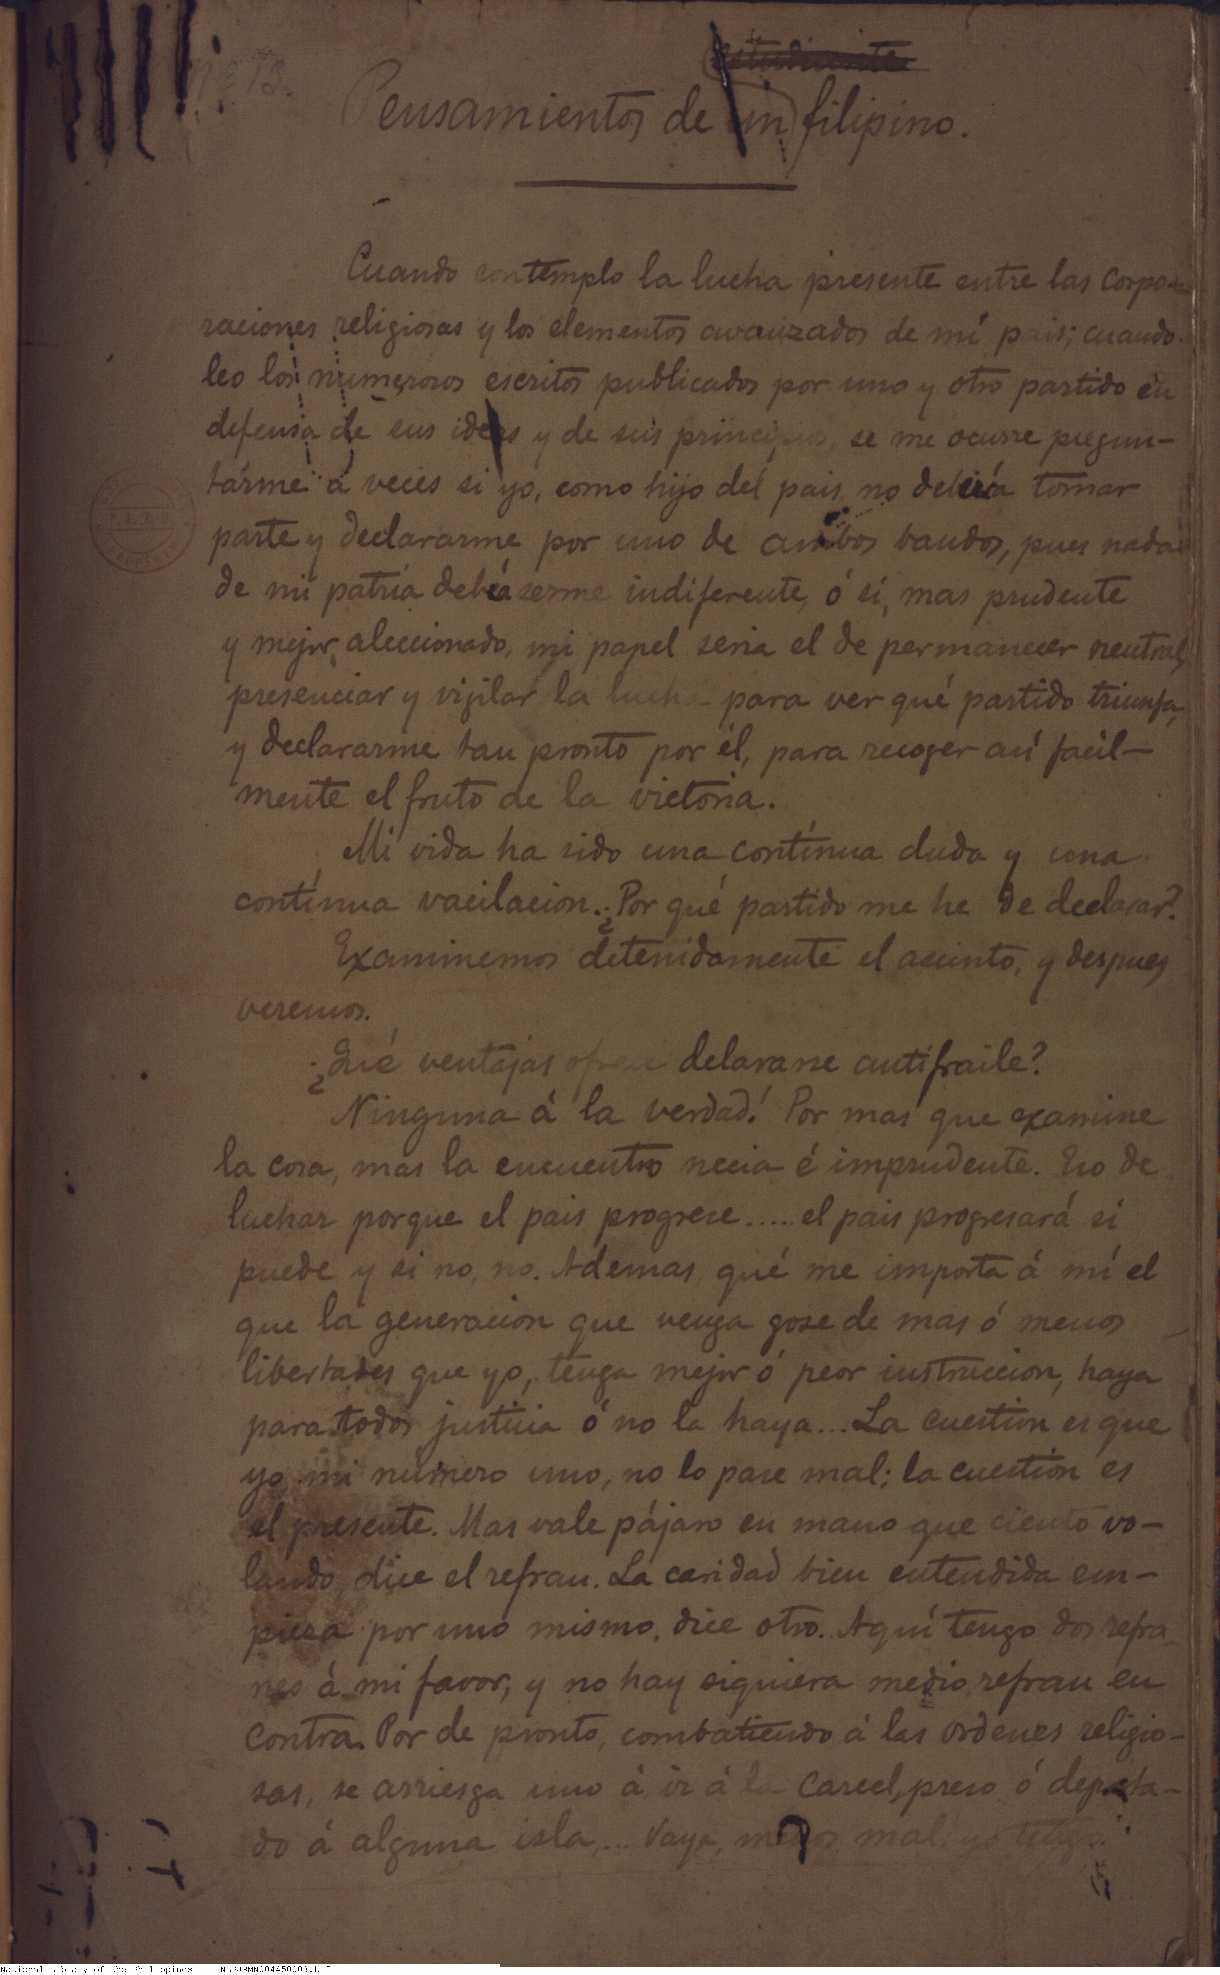 Nº 13.
estudiante
Pensamientos de un filipino.
Cuando contemplo la lucha presente entre las corpo-
raciones religiosas y los elementos avanzados de mi pais; cuando
leo los numerosos escritos publicados por uno y otro partido en
defensa de sus ideas y de sus principios, se me ocurre pregun-
tárme á veces si yo, como hijo del pais no debiéa tomar
parte y declararme por uno de ambos bandos, pues nada
de mi patria debía serme indiferente, ó si, mas prudente
y mejor aleccionado, mi papel seria el de permanecer neutral,
presenciar y vijilar la lucha para ver qué partido triunfa,
y declararme tan pronto por él, para recoger así facil-
mente el fruto de la victoria.
Mi vida ha sido una contínua duda y una
contínua vacilacion. ¿Por qué partido me he de declarar?
Examinemos detenidamente el asunto, y despues
veremos.
¿Qué ventajas ofrece delararse antifraile?
Ninguna á la verdad! Por mas que examine
la cosa, mas la encuentro necia é imprudente. Eso de
luchar porque el pais progrese..... el pais progresará si
puede y si no, no. Ademas, qué me importa á mí el
que la generacion que venga goze de mas ó menos
libertades que yo, tenga mejor ó peor instruccion, haya
para todos justicia ó no la haya... La cuestion es que
yo mi número uno, no lo pase mal; la cuestion es
el presente. Mas vale pájaro en mano que ciento vo-
lando, dice el refran. La caridad bien entendida em-
pieza por uno mismo, dice otro. Aquí tengo dos refra-
nes á mi favor, y no hay siquiera medio refran en
contra. Por de pronto, combatiendo á las ordenes religio-
sas, se arriesga uno á ir á la carcel, preso ó deporta-
do á alguna isla,... Vaya, menos mal: yo tengo
National Library of the Philippines